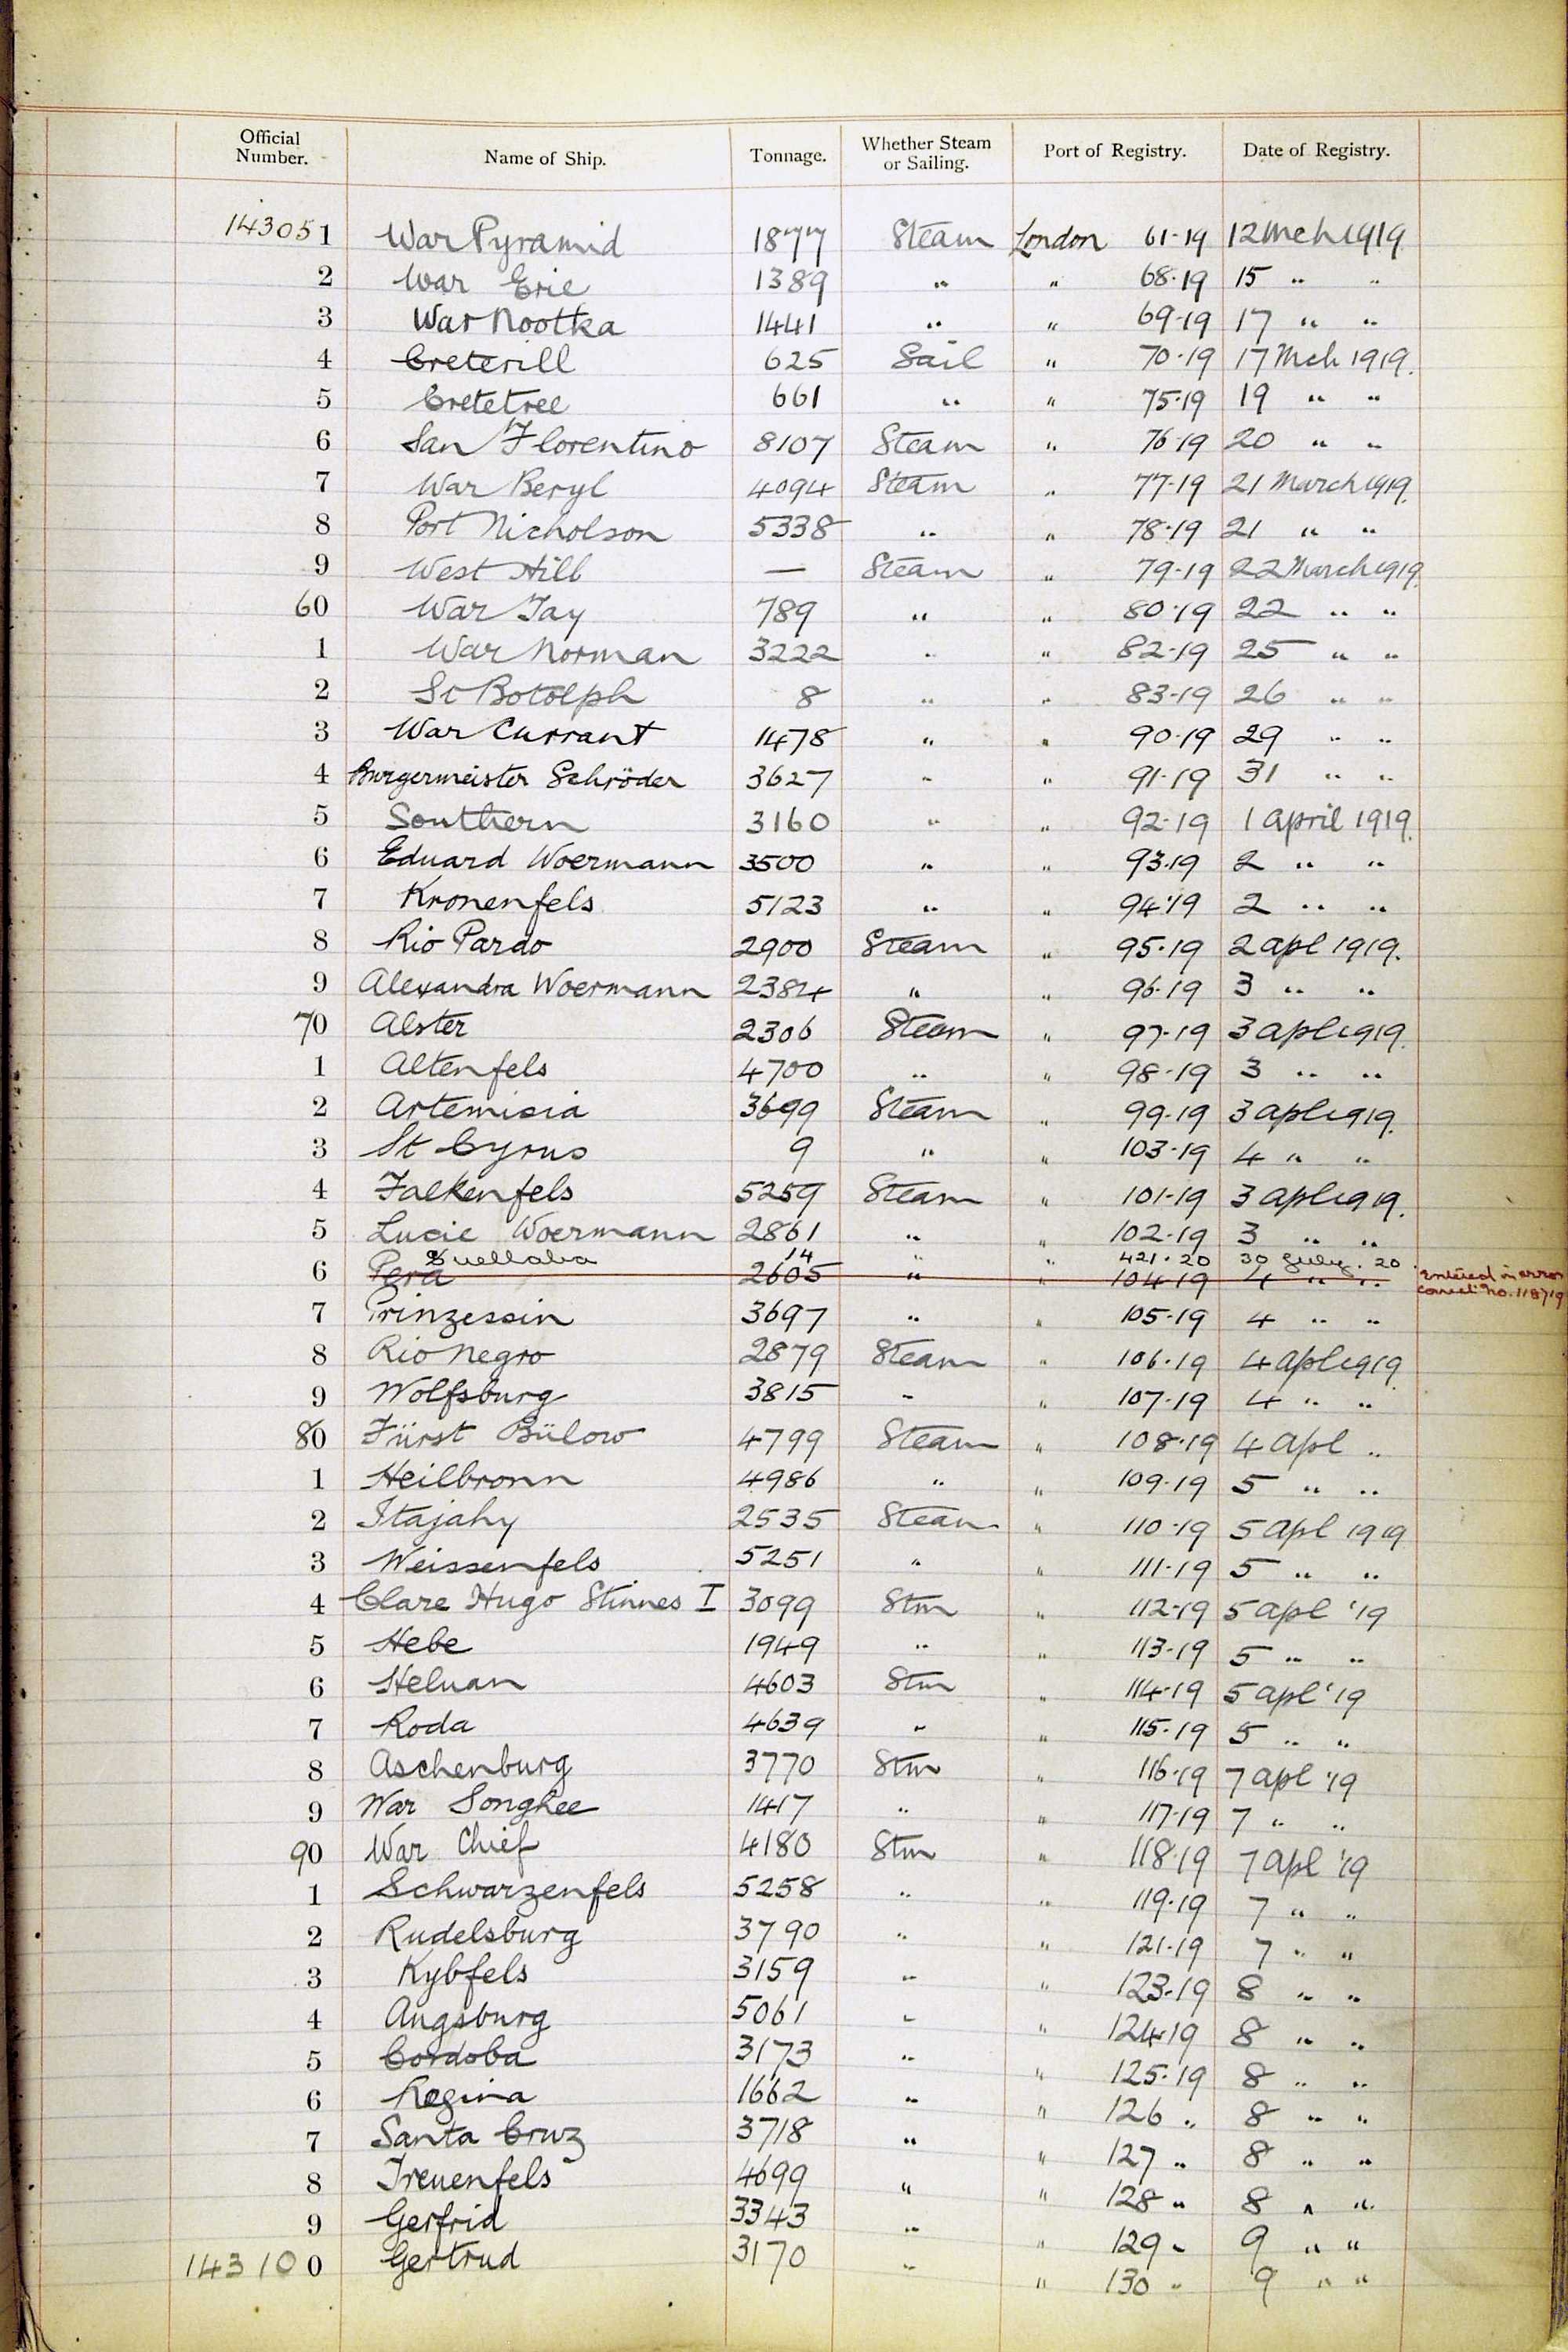 Official Number. Name of Ship. Tonnage. Whether Steam or Sailing. Port of Registry. Date of Registry.
143051 War Pyramid 1877 Steam London 61-19 12 Mch 1919.
2 War Erie 1389 " " 68.19 15 " "
3 War Nootka 1441 " " 69-19 17 " "
4 Creterill 625 Sail " 70.19 17 Mch 1919.
5 Cretetree 661 " " 75.19 19 " "
6 San Florentino 8107 Steam " 76.19 20 " "
7 War Beryl 4094 Steam " 77-19 21 March 1919.
8 Port Nicholson 5338 " " 78.19 21 " "
9 West Hill — Steam " 79-19 22 March 1919.
60 War Tay 789 " " 80.19 22 " "
1 War Norman 3222 " " 82-19 25 " "
2 St Botolph 8 " " 83-19 26 " "
3 War Currant 1478 " " 90.19 29 " "
4 Burgermeister Schröder 3627 " " 91-19 31 " "
5 Southern 3160 " " 92-19 1 April 1919.
6 Eduard Woermann 3500 " " 93.19 2 " "
7 Kronenfels 5123 " " 94.19 2 " "
8 Rio Pardo 2900 Steam " 95.19 2 apl 1919.
9 Alexandra Woermann 2384 " " 96.19 3 " "
70 Alster 2306 Steam " 97-19 3 apl 1919.
1 Altenfels 4700 " " 98-19 3 " "
2 Artemisia 3699 Steam " 99-19 3 apl 1919.
3 St Cyrus 9 " " 103-19 4 " "
4 Falkenfels 5259 Steam " 101-19 3 apl 1919.
5 Lucie Woermann 2861 " " 102-19 3 " "
Quellaba 14 " " 421.20 30 July. 20
6 Pera 2605 " " 104-19 4 " " Entered in error correct No. 118719
7 Prinzessin 3697 " " 105-19 4 " "
8 Rio Negro 2879 Steam " 106.19 4 apl 1919
9 Wolfsburg 3815 " " 107-19 4 " "
80 Fürst Bülow 4799 Steam " 108.19 4 apl "
1 Heilbronn 4986 " " 109-19 5 " "
2 Itajahy 2535 Steam " 110-19 5 apl 1919
3 Weissenfels 5251 " " 111-19 5 " "
4 Clare Hugo Stinnes I 3099 Stm " 112-19 5 apl '19
5 Hebe 1949 " " 113-19 5 " "
6 Heluan 4603 Stm " 114-19 5 apl '19
7 Roda 4639 " " 115-19 5 " "
8 Aschenburg 3770 Stm " 116-19 7 apl '19
9 War Songhee 1417 " " 117-19 7 " "
90 War Chief 4180 Stm " 118.19 7 apl '19
1 Schwarzenfels 5258 " " 119.19 7 " "
2 Rudelsburg 3790 " " 121-19 7 " "
3 Kybfels 3159 " " 123-19 8 " "
4 Augsburg 5061 " " 124.19 8 " "
5 Cordoba 3173 " " 125.19 8 " "
6 Regina 1662 " " 126 " 8 " "
7 Santa Cruz 3718 " " 127 " 8 " "
8 Treuenfels 4699 " " 128 " 8 " "
9 Gerfrid 3343 " " 129 " 9 " "
143100 Gertrud 3170 " " 130 " 9 " "